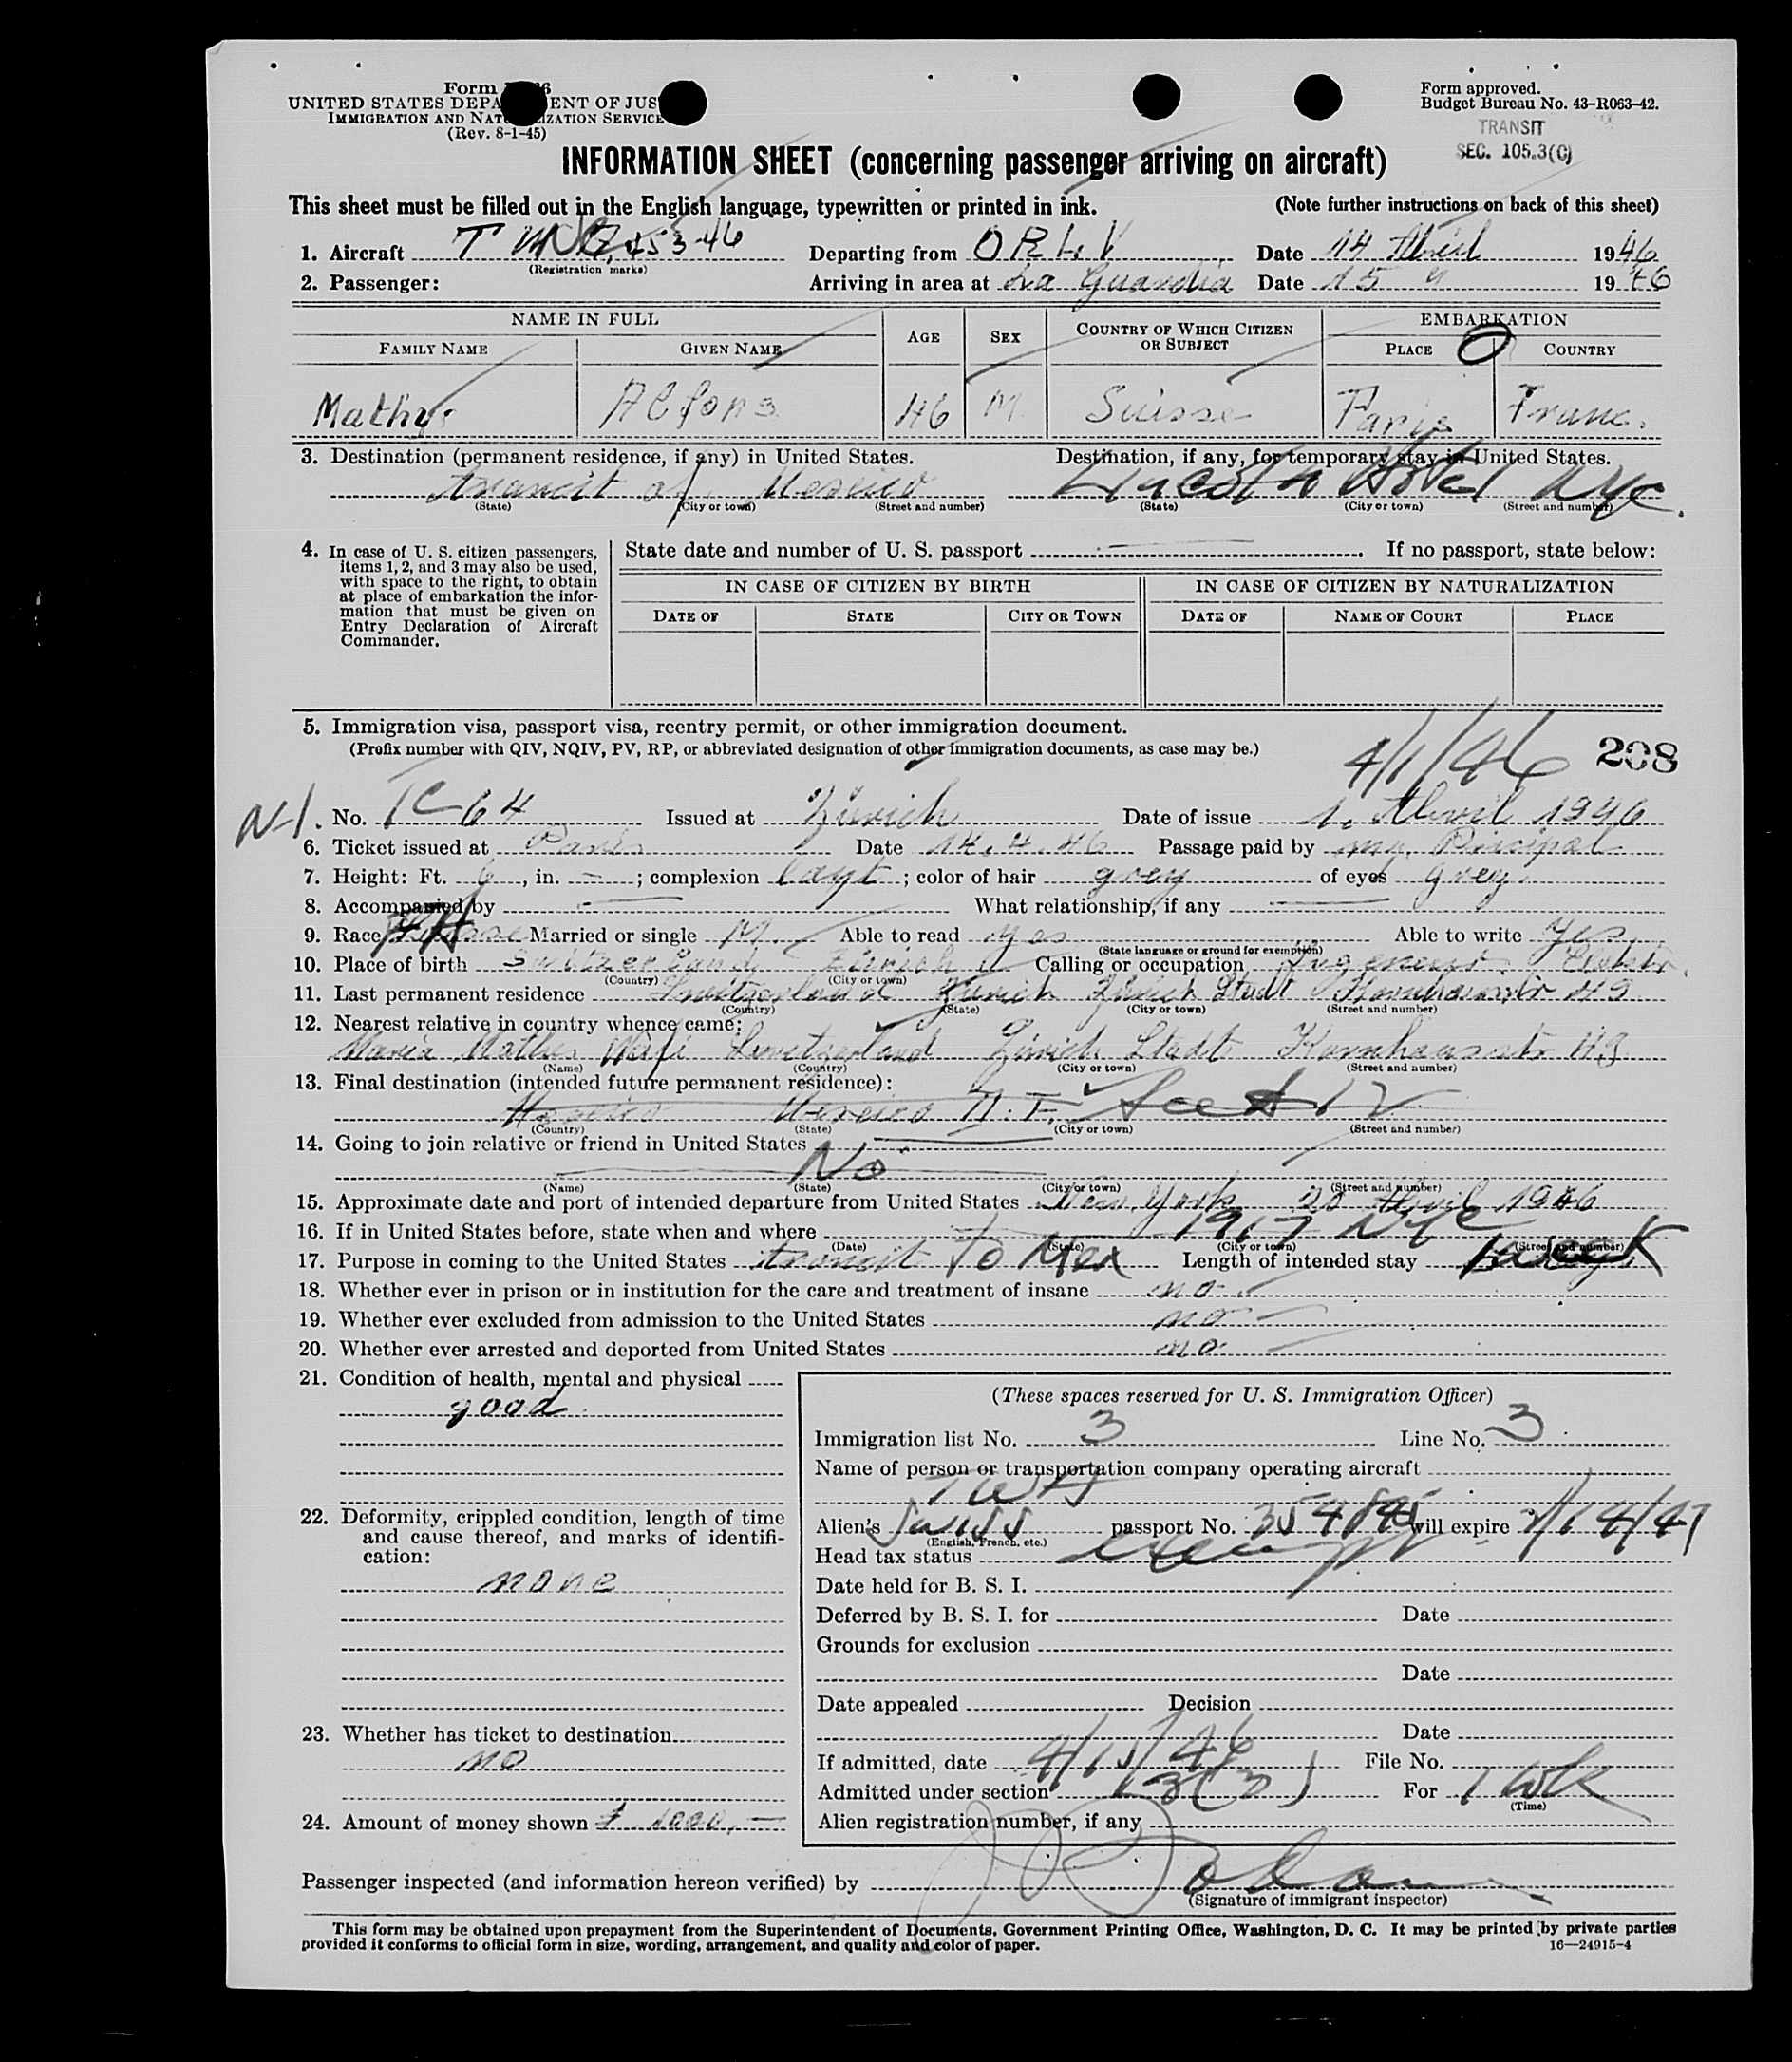 Form I-466
UNITED STATES DEPARTMENT OF JUSTICE
IMMIGRATION AND NATURALIZATION SERVICE
(Rev. 8-1-45)
Form approved.
Budget Bureau No. 43-R063-42.
TRANSIT
SEC. 105.3(C)
INFORMATION SHEET (concerning passenger arriving on aircraft)
This sheet must be filled out in the English language, typewritten or printed in ink. (Note further instructions on back of this sheet)
1. Aircraft Departing from ORLY Date 14 April 1946
(Registration marks)
2. Passenger: Arriving in area at La Guardia Date 15 " 1946
NAME IN FULL AGE SEX COUNTRY OF WHICH CITIZEN OR SUBJECT EMBARKATION
FAMILY NAME GIVEN NAME PLACE COUNTRY
Mathys Alfons 46 M Suisse Paris Franc.
3. Destination (permanent residence, if any) in United States. Destination, if any, for temporary stay in United States.
transit of Mexico Lincoln Hotel NYC.
(State) (City or town) (Street and number) (State) (City or town) (Street and number)
4. In case of U. S. citizen passengers, items 1, 2, and 3 may also be used, with space to the right, to obtain at place of embarkation the information that must be given on Entry Declaration of Aircraft Commander.
State date and number of U. S. passport — . If no passport, state below:
IN CASE OF CITIZEN BY BIRTH IN CASE OF CITIZEN BY NATURALIZATION
DATE OF STATE CITY OR TOWN DATE OF NAME OF COURT PLACE
5. Immigration visa, passport visa, reentry permit, or other immigration document.
(Prefix number with QIV, NQIV, PV, RP, or abbreviated designation of other immigration documents, as case may be.)
4/1/46 208
N-1. No. TC 64 Issued at Zürich Date of issue 1. April 1946
6. Ticket issued at Paris Date 14.4.46 Passage paid by my Principal
7. Height: Ft. 6, in. —; complexion layt; color of hair grey of eyes grey
8. Accompanied by — What relationship, if any —
9. Race Married or single M. Able to read yes Able to write Yes
(State language or ground for exemption)
10. Place of birth Switzerland Zürich Calling or occupation
(Country) (City or town)
11. Last permanent residence Switzerland Zürich Zürich Stadt Kornhausstr 49
(Country) (State) (City or town) (Street and number)
12. Nearest relative in country whence came:
Maria Mathys Switzerland Zürich Stadt Kornhausstr
(Name) (Country) (City or town) (Street and number)
13. Final destination (intended future permanent residence):
Mexico Mexico
(Country) (State) (City or town) (Street and number)
14. Going to join relative or friend in United States
No
(Name) (State) (City or town) (Street and number)
15. Approximate date and port of intended departure from United States New York 20 April 1946
16. If in United States before, state when and where 1917 NYC
(Date) (State) (City or town) (Street and number)
17. Purpose in coming to the United States transit to Mex Length of intended stay 1 week
18. Whether ever in prison or in institution for the care and treatment of insane no
19. Whether ever excluded from admission to the United States no
20. Whether ever arrested and deported from United States no
21. Condition of health, mental and physical
good
22. Deformity, crippled condition, length of time and cause thereof, and marks of identification:
none
23. Whether has ticket to destination
no
24. Amount of money shown 1000.—
(These spaces reserved for U. S. Immigration Officer)
Immigration list No. 3 Line No. 3
Name of person or transportation company operating aircraft
TWA
Alien's Swiss passport No. will expire
(English, French, etc.)
Head tax status exempt
Date held for B. S. I.
Deferred by B. S. I. for Date
Grounds for exclusion
Date
Date appealed Decision
Date
If admitted, date 4/15/46 File No.
Admitted under section 3(3) For 1 wk
(Time)
Alien registration number, if any
Passenger inspected (and information hereon verified) by
(Signature of immigrant inspector)
This form may be obtained upon prepayment from the Superintendent of Documents, Government Printing Office, Washington, D. C. It may be printed by private parties
provided it conforms to official form in size, wording, arrangement, and quality and color of paper. 16—24915-4